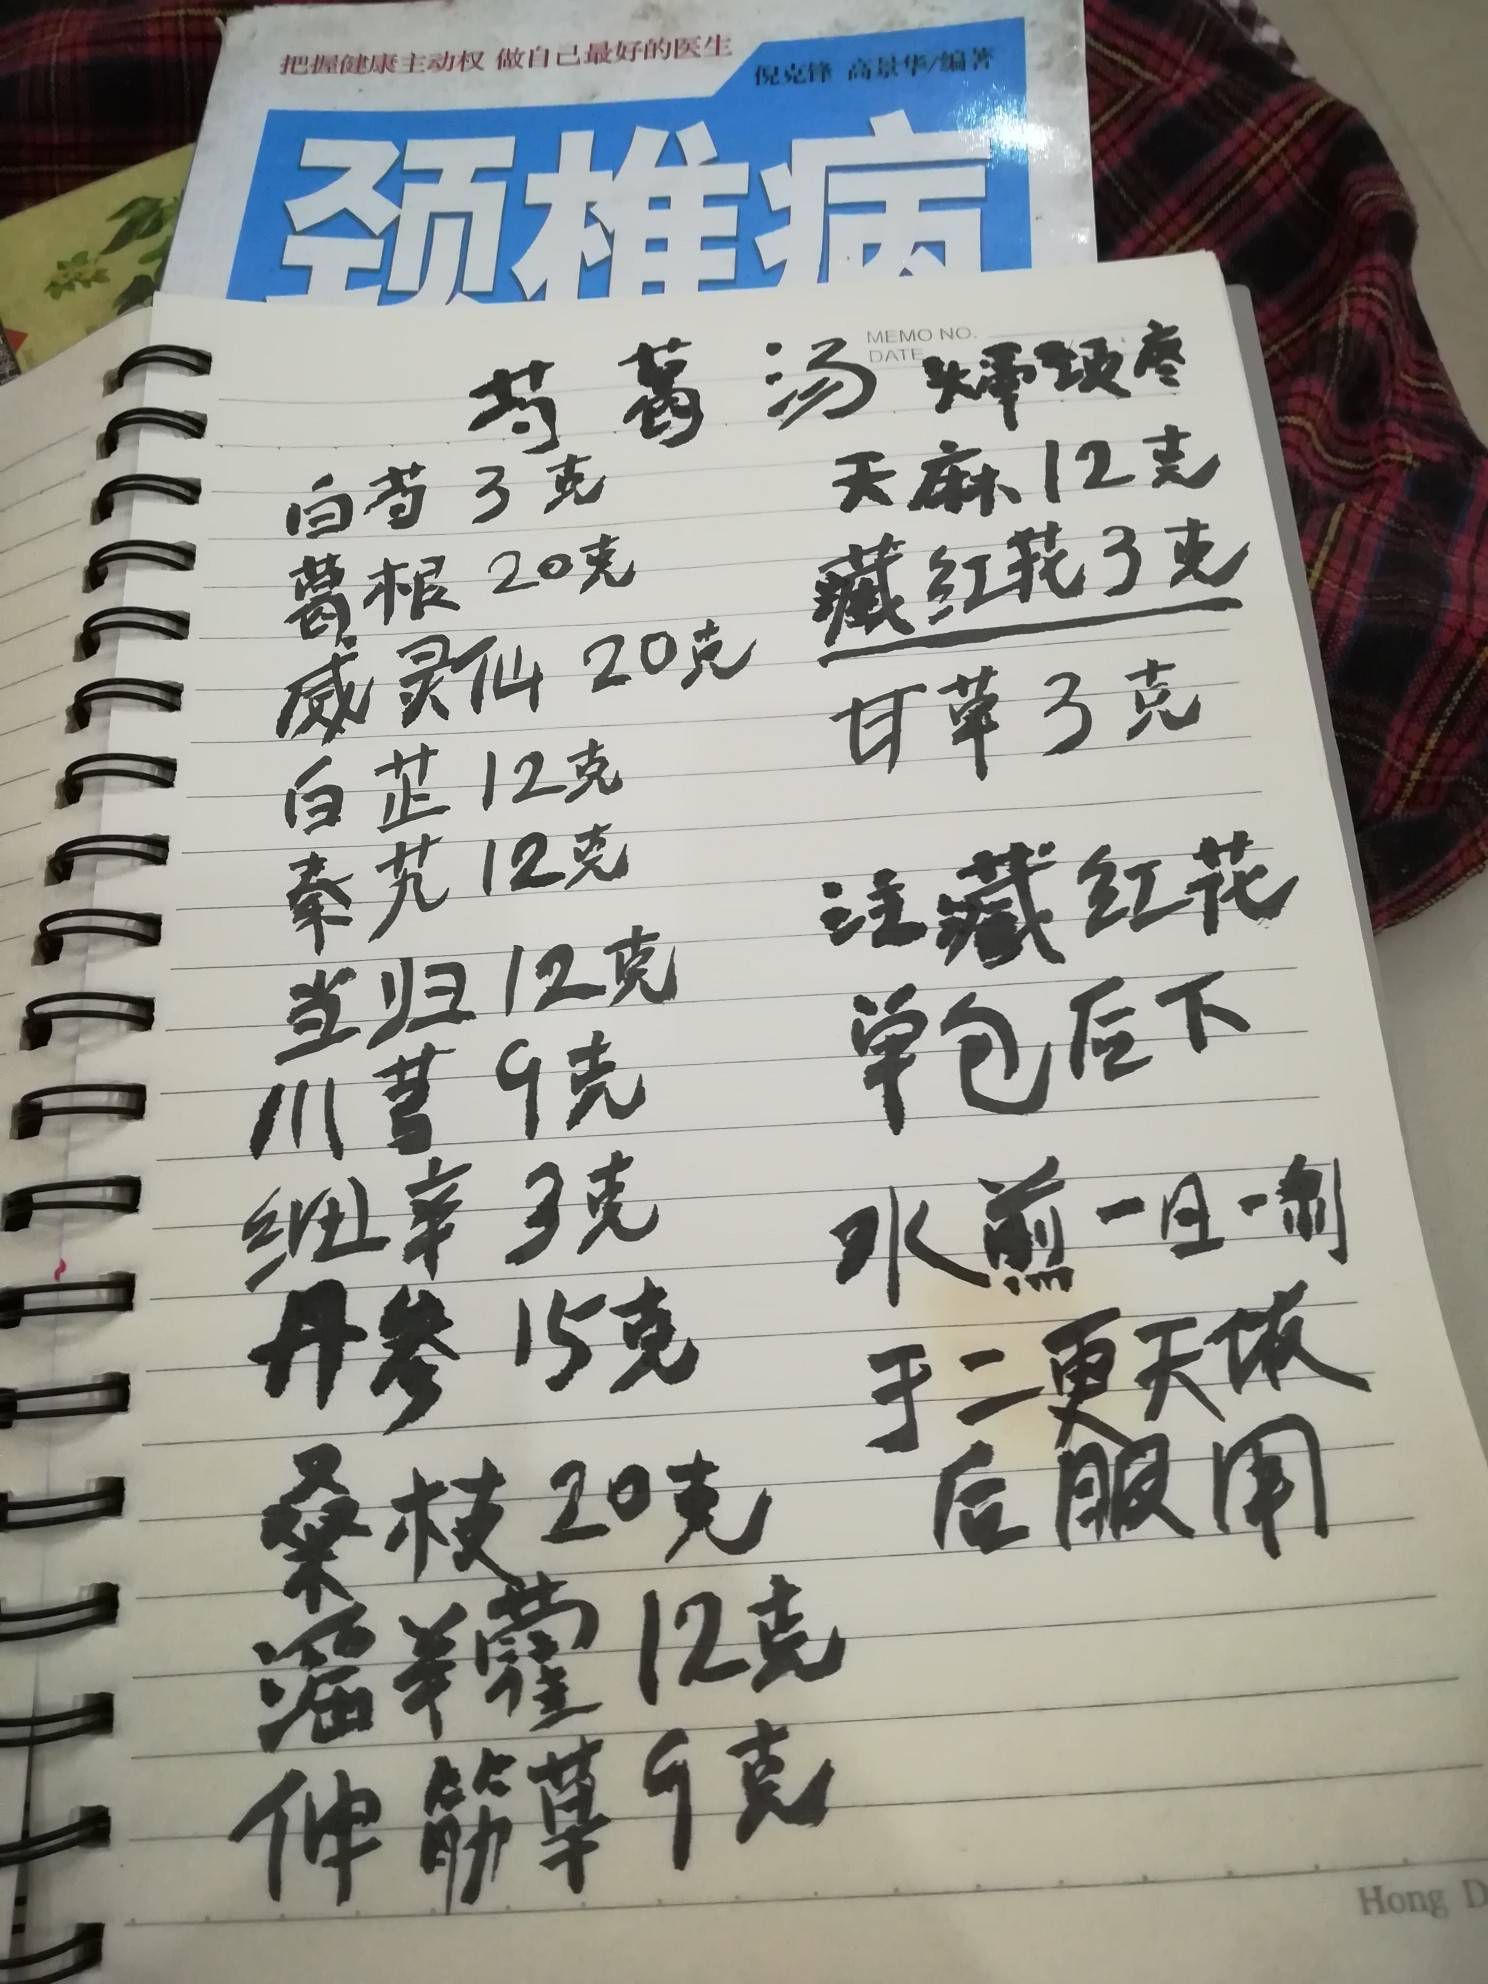 把握健康主动权 做自己最好的医生
倪克锋 高景华/编著
颈椎病
MEMO NO.
DATE
芍葛汤
白芍3克
葛根20克
威灵仙20克
白芷12克
秦艽12克
当归12克
川芎9克
细辛3克
丹参15克
桑枝20克
淫羊藿12克
伸筋草9克
天麻12克
藏红花3克
甘草3克
注藏红花
单包后下
水煎一日一剂
于二更天饭
后服用
Hong D